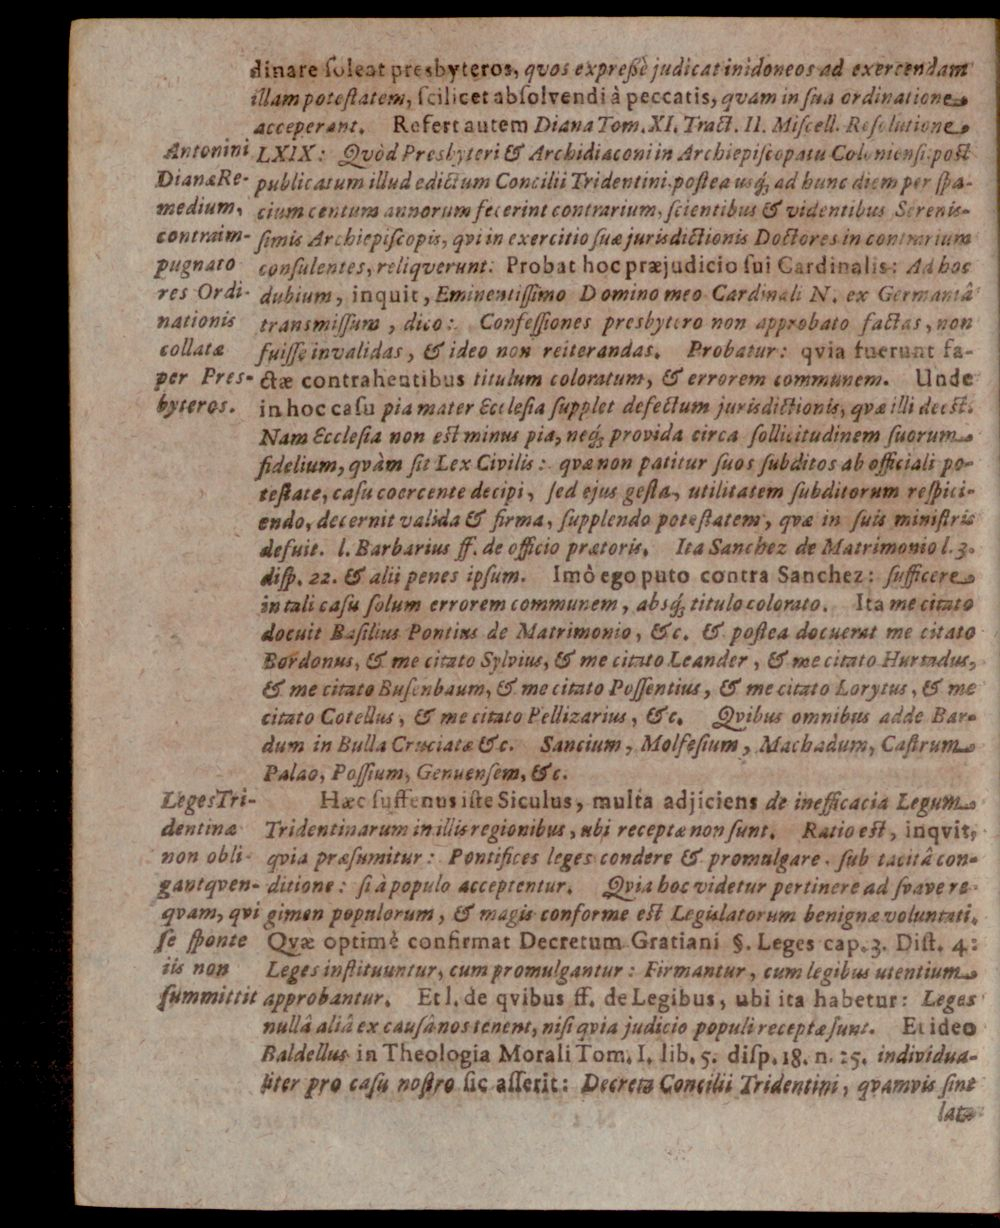 dinare ſoleat presbyteros, quos expreßè judicat inidoneos ad exercendam
illam poteſtatem, ſcilicet abſolvendi à peccatis, qvam in ſua ordinatione
acceperant. Refert autem Diana Tom. XI. Tract. II. Miſcell. Reſolutione
LXIX: Qvòd Presbyteri & Archidiaconi in Archiepiſcopatu Colonienſi poſt
publicatum illud edictum Concilii Tridentini, poſtea usq́; ad hunc diem per ſpa-
cium centum annorum fecerint contrarium, ſcientibus & videntibus Serenis-
ſimis Archiepiſcopis, qvi in exercitio ſuæ jurisdictionis Doctores in contrarium
conſulentes, reliqverunt. Probat hoc præjudicio ſui Cardinalis: Ad hoc
dubium, inquit, Eminentiſſimo Domino meo Cardinali N. ex Germaniâ
transmiſſum, dico: Confeſſiones presbytero non approbato factas, non
fuiſſe invalidas, & ideo non reiterandas. Probatur: qvia fuerunt fa-
ctæ contrahentibus titulum coloratum, & errorem communem. Unde
in hoc caſu pia mater Eccleſia ſupplet defectum jurisdictionis, qvæ illi deeſt.
Nam Eccleſia non eſt minus pia, neq́; provida circa ſollicitudinem ſuorum
fidelium, qvàm ſit Lex Civilis: qvæ non patitur ſuos ſubditos ab officiali po-
teſtate, caſu coercente decipi, ſed ejus geſta, utilitatem ſubditorum reſpici-
endo, decernit valida & firma, ſupplendo poteſtatem, qvæ in ſuis miniſtris
defuit. l. Barbarius ff. de officio prætoris. Ita Sanchez de Matrimonio l. 3.
diſp. 22. & alii penes ipſum. Imò ego puto contra Sanchez: ſufficere
in tali caſu ſolum errorem communem, absq́; titulo colorato. Ita me citato
docuit Baſilius Pontius de Matrimonio, &c. & poſtea docuerat me citato
Bordonus, & me citato Sylvius, & me citato Leander, & me citato Hurtadus,
& me citato Buſenbaum, & me citato Poſſentius, & me citato Lorytus, & me
citato Cotellus, & me citato Pellizarius, &c. Qvibus omnibus adde Bar-
dum in Bulla Cruciatæ &c. Sancium, Molfeſium, Machadum, Caſtrum
Palao, Poſſium, Genuenſem, &c.
Antonini
Dianæ Re-
medium,
contra im-
pugnato
res Ordi-
nationis
collatæ
per Pres-
byteros.
Hæc ſuffenus iſte Siculus, multa adjiciens de inefficacia Legum
Tridentinarum in illis regionibus, ubi receptæ non ſunt. Ratio eſt, inqvit,
qvia præſumitur: Pontifices leges condere & promulgare, ſub tacitâ con-
ditione: ſi à populo acceptentur. Qvia hoc videtur pertinere ad ſvave re-
gimen populorum, & magis conforme eſt Legislatorum benignæ voluntati.
Qvæ optimè confirmat Decretum Gratiani §. Leges cap. 3. Diſt. 4:
Leges inſtituuntur, cum promulgantur: Firmantur, cum legibus utentium
approbantur. Et l. de qvibus ff. de Legibus, ubi ita habetur: Leges
nullâ aliâ ex cauſâ nos tenent, niſi qvia judicio populi receptæ ſunt. Et ideo
Baldellus in Theologia Morali Tom. I. lib. 5. diſp. 18. n. 25. individua-
liter pro caſu noſtro ſic aſſerit: Decreta Concilii Tridentini, qvamvis ſint
Leges Tri-
dentinæ
non obli-
gant qven-
qvam, qvi
ſe ſponte
iis non
ſummittit
lata